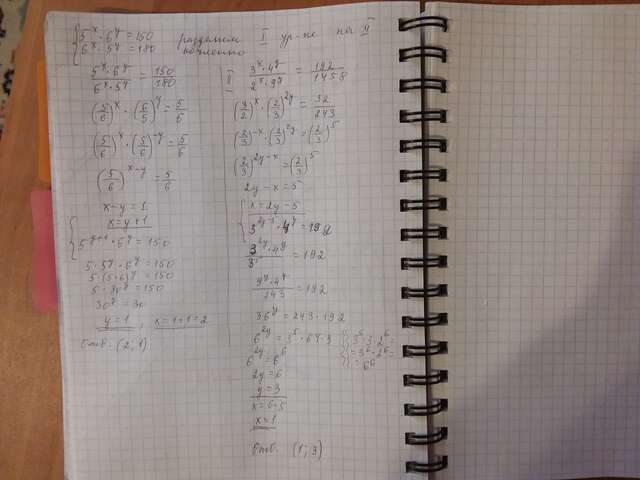 5^x · 6^y = 150
6^x · 5^y = 180
разделим I ур-ие на II
почленно
5^x · 6^y / 6^x · 5^y = 150/180
(5/6)^x · (6/5)^y = 5/6
(5/6)^x · (5/6)^-y = 5/6
(5/6)^x-y = 5/6
x-y = 1
x = y+1
5^y+1 · 6^y = 150
5 · 5^y · 6^y = 150
5 · (5·6)^y = 150
5 · 30^y = 150
30^y = 30
y = 1; x = 1+1 = 2
Отв. (2; 1)
II 3^x · 4^y / 2^x · 9^y = 192/1458
(3/2)^x · (2/3)^2y = 32/243
(2/3)^-x · (2/3)^2y = (2/3)^5
(2/3)^2y-x = (2/3)^5
2y-x = 5
x = 2y-5
3^2y-5 · 4^y = 192
3^2y · 4^y / 3^5 = 192
9^y · 4^y / 243 = 192
36^y = 243 · 192
6^2y = 3^5 · 64 · 3
3^5 · 3 · 2^6 =
= 3^6 · 2^6 =
= 6^6
6^2y = 6^6
2y = 6
y = 3
x = 6-5
x = 1
Отв. (1; 3)